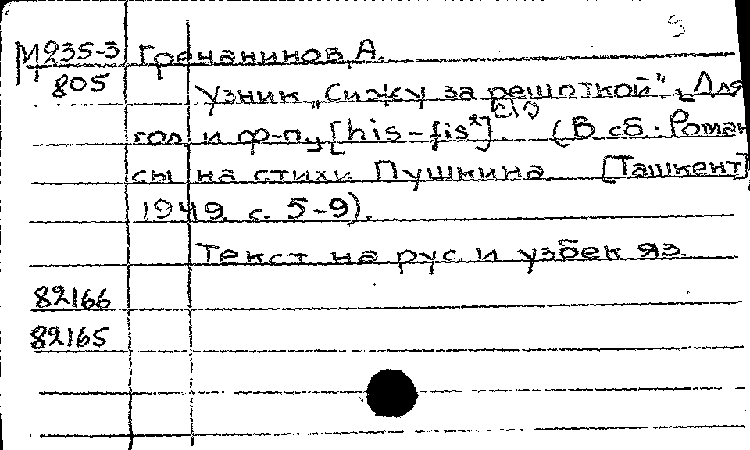 М235-3 Гречанинов, А.
805
Узник "Сижу за решоткой". Для
гол. и ф-п. [his-fis²]. (В сб. Роман
сы на стихи Пушкина. [Ташкент]
1949. с. 5-9).
Текст на рус. и узбек. яз.
82166
82165